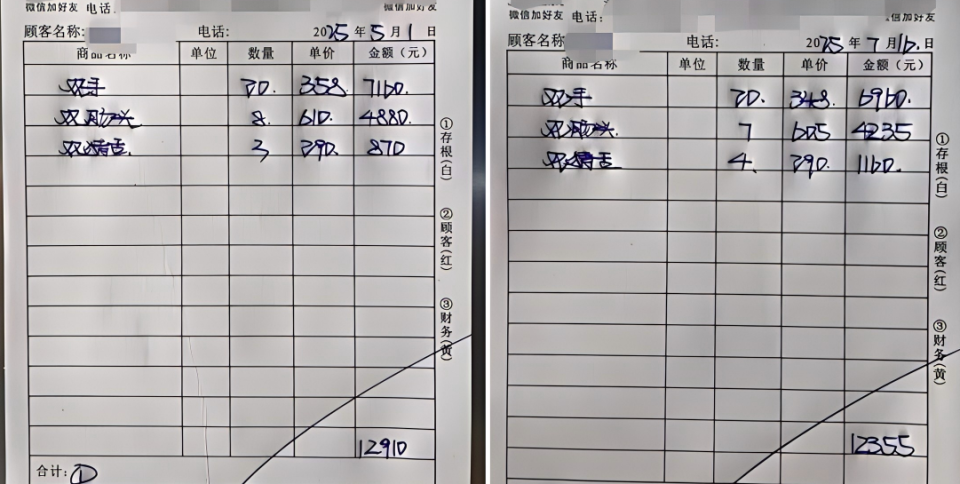 微信加好友 电话:
微信加好友
顾客名称: 电话: 2025 年 5 月 1 日
商品名称 单位 数量 单价 金额(元)
双手 20. 358. 7160.
双 8 610. 4880.
双猪舌. 3 290. 870
①存根(白)
②顾客(红)
③财务(黄)
12910
合计: ①
微信加好友 电话:
微信加好友
顾客名称 电话: 2025 年 7 月 16. 日
商品名称 单位 数量 单价 金额(元)
双手 20. 348. 6960.
双 7 605 4235
双猪舌 4. 290. 1160.
①存根(白)
②顾客(红)
③财务(黄)
12355